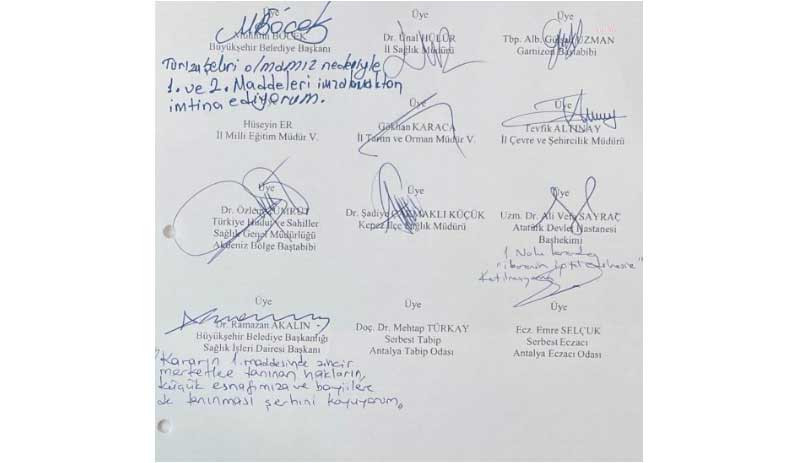 Üye
Üye
Üye
MBöcek
Muhittin BÖCEK
Büyükşehir Belediye Başkanı
Dr. Ünal HÜLÜR
İl Sağlık Müdürü
Tbp. Alb. UZMAN
Garnizon Baştabibi
Turizm şehri olmamız nedeniyle
1. ve 2. Maddeleri imzalamaktan
imtina ediyorum.
Üye
Üye
Hüseyin ER
İl Milli Eğitim Müdür V.
Gökhan KARACA
İl Tarım ve Orman Müdür V.
Tevfik ALTINAY
İl Çevre ve Şehircilik Müdürü
Üye
Üye
Üye
Dr. Özlem
Türkiye Hudut ve Sahiller
Sağlık Genel Müdürlüğü
Akdeniz Bölge Baştabibi
Dr. Şadiye ÇAKMAKLI KÜÇÜK
Kepez İlçe Sağlık Müdürü
Uzm. Dr. Ali Vefa SAYRAÇ
Atatürk Devlet Hastanesi
Başhekimi
1 Nolu
Üye
Üye
Üye
Dr. Ramazan AKALIN
Büyükşehir Belediye Başkanlığı
Sağlık İşleri Dairesi Başkanı
Doç. Dr. Mehtap TÜRKAY
Serbest Tabip
Antalya Tabip Odası
Ecz. Emre SELÇUK
Serbest Eczacı
Antalya Eczacı Odası
"Kararın 1. maddesinde zincir
marketlere tanınan hakların,
küçük esnafımıza ve bayilere
de tanınması şerhini koyuyorum.